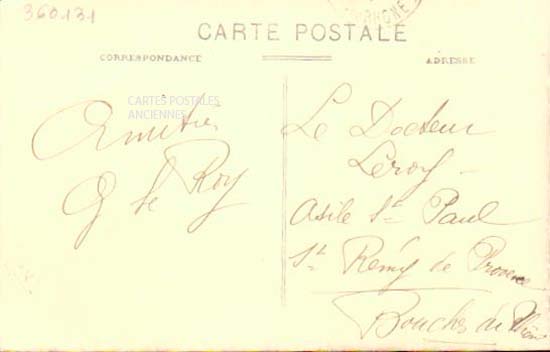 360131
RHONE
CARTE POSTALE
CORRESPONDANCE
ADRESSE
CARTES POSTALES
ANCIENNES
Amitiés
G le Roy
Le Docteur
Leroy -
Asile St Paul
St Rémy de Provence
Bouches du Rhône